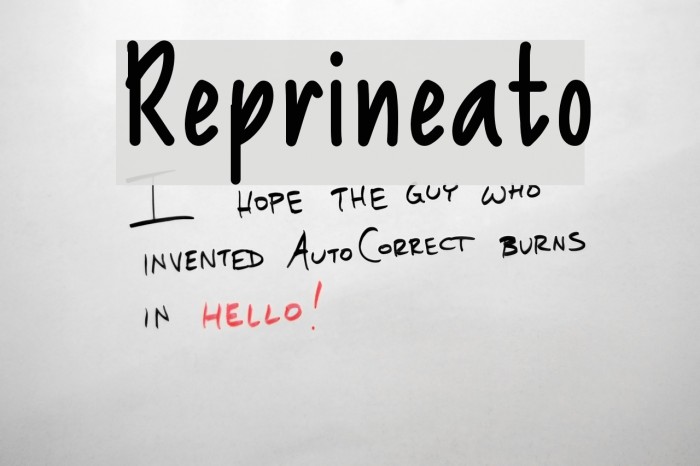 Reprineato
I HOPE THE GUY WHO
INVENTED AUTOCORRECT BURNS
IN HELLO!